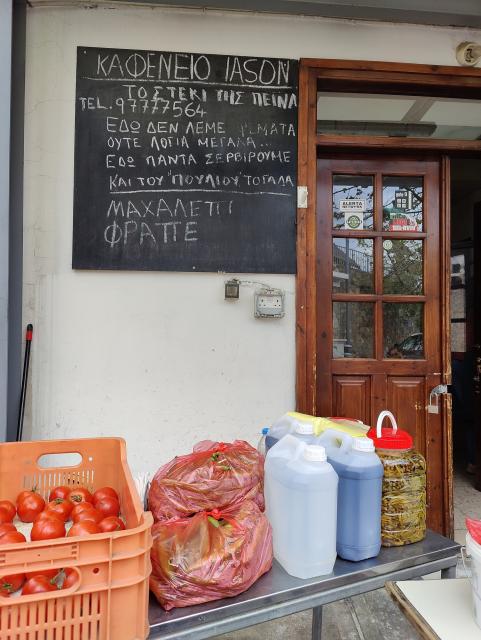 ΚΑΦΕΝΕΙΟ IASON
ΤΟ ΣΤΕΚΙ ΤΗΣ ΠΕΙΝΑ
TEL. 97777564
ΕΔΩ ΔΕΝ ΛΕΜΕ ΨΕΜΑΤΑ
ΟΥΤΕ ΛΟΓΙΑ ΜΕΓΑΛΑ...
ΕΔΩ ΠΑΝΤΑ ΣΕΡΒΙΡΟΥΜΕ
ΚΑΙ ΤΟΥ "ΠΟΥΛΙΟΥ" ΤΟ ΓΑΛΑ
ΜΑΧΑΛΕΠΙ
ΦΡΑΠΕ